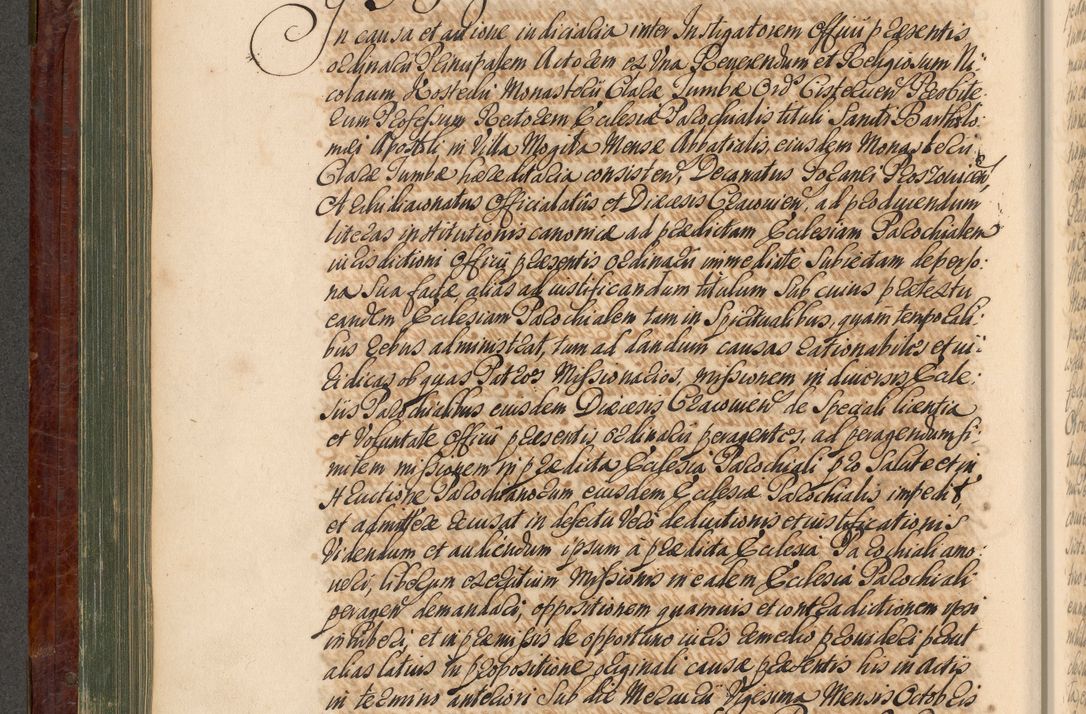 In causa et actione iudicialia inter Instigatorem Officii præsentis
ordinarii Principalem Actorem ex Vna Reverendum et Religiosum Ni:
colaum Rosterlii Monasterii Claræ Tumbæ Ord: Cistercien: Præsbite:
rum Professum Rectorem Ecclesiæ Parochialis tituli Sancti Bartholo:
mæi Apostoli in Villa Mogiła Mensæ Abbatialis eiusdem Monasterii
Claræ Tumbæ hæreditaria consisten, Decanatus Foranei Proszovicen,
Archidiaconatus Officialatus et Diæcesis Cracovien, ad producendum
literas institutionis canonicæ ad prædictam Ecclesiam Parochialem
iurisdictioni Officii præsentis ordinarii immediate Subiectam de perso:
na Sua factæ, alias ad iustificandum titulum Sub cuius prætextu
eandem Ecclesiam Parochialem tam in Spiritualibus, quam tempo rali:
bus rebus administrat, tum ad dandum causas rationabiles et iu:
ridicas ob quas Patres Missionarios, missionem in diversis Eccle:
siis Parochialibus eiusdem Diæcesis Cracovien de Speciali licentia
et Voluntate Officii præsentis ordinarii peragentes, ad peragendum si:
milem missionem in prædicta Ecclesia Parochiali pro Salute et in
structione Parochianorum eiusdem Ecclesiæ Parochialis impedit,
et admittere recusat in defectu Vero deductionis et iustificationis
Videndum et audiendum ipsum a prædicta Ecclesia Parochiali amo:
veri, liberum exercitium Missionis in eadem Ecclesia Parochiali
peragen demandari, oppositionem quamvis et contradictionem ipsi
inhiberi, et in præmissis de opportuno iuris remedio provideri prout
alias latius in propositione originali causæ præsentis his in Actis
in termino anteriori Sub die Mercurii Vigesima Mensis Octobris